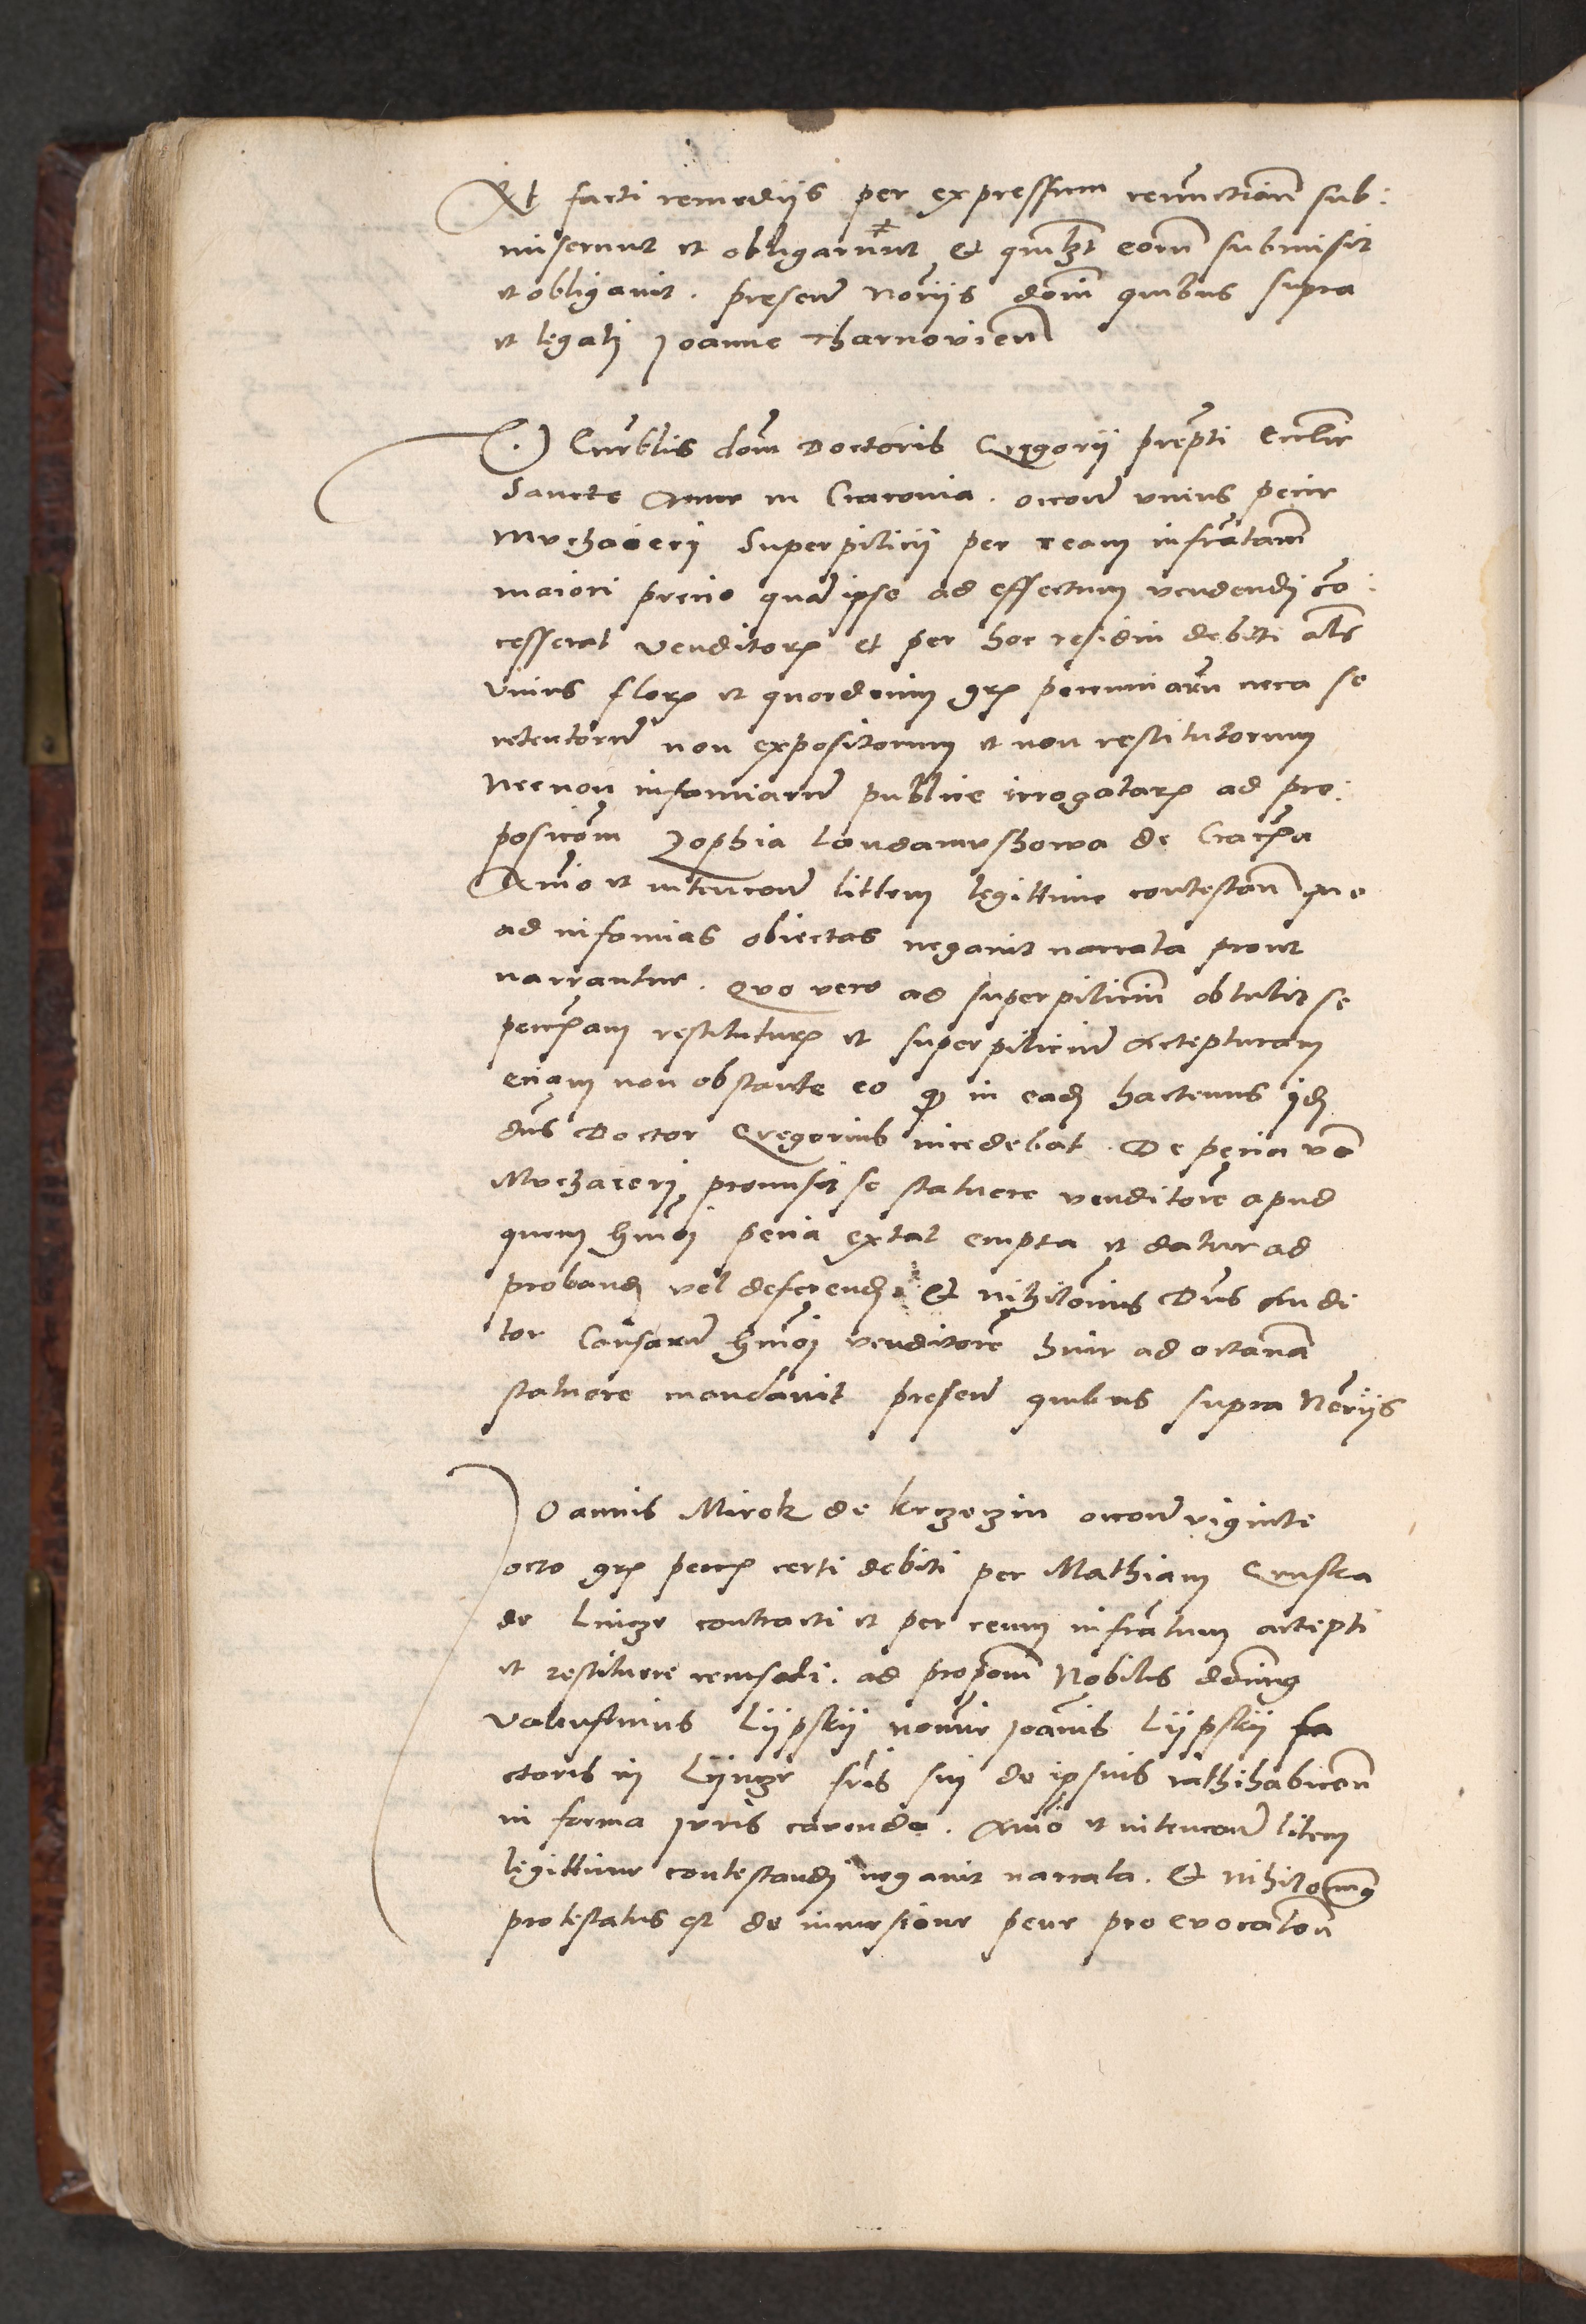 Et facti remediis per expressum renunctiacionem sub:
miserunt et obligarunt et quilibet eorum submisit
et obligavit. presen. Notariis dominis quibus supra
et legali Joanne Tharnovien.
Venerabilis domini Doctoris Gregorii prepositi Ecclesie
Sancte Anne in Cracovia. occon. unius pecie
Muchaieri Superpilicii per ream infrascriptam
maiori precio quam ipse ad effectum vendendi con:
cesserat venditorum et per hoc residui debiti alias
unius floreni et quordecim gr. pecuniarum circa se
retentorum non expositorum et non restitutorum
Necnon infamiarum publice irrogatarum ad pro:
posicionem Zophia de Cracovia
Animo et intencione littem legittime contestan. quo
ad infamias obiectas negavit narrata prout
narrantur. Quo vero ad superpilicium obtulit se
pecuniam restituturam et superpilicium accepturam
eciam non obstante eo quod in eadem hactenus idem
dominus Doctor Gregorius incedebat. De pecia vero
Muchaieri promisit se statuere venditorem apud
quem huiusmodi pecia extat empta et datur ad
proband. vel deferend. Et nihilominus Dominus Audi
tor Causarum huiusmodi venditorem huic ad octavam
statuere mandavit presen. quibus supra Notariis
Joannis Mirek de krzeczin occon. viginte
octo gr. pecunie certi debiti per Mathiam
de Lincze contracti et per reum infrascriptum accepti
et restituere recusati. ad proposicionem Nobilis dominus
Valentinus Lypskii nomine Joannis Lypskii fa
ctoris in Lyncze fratris sui de ipsius rathihabicione
in forma juris cavendo. Animo et intencione litem
legittime contestandi negavit narrata. Et nihilominus
protestatus est de incursione pene pro evocacione